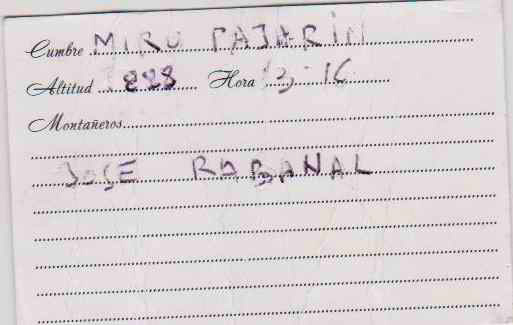 Cumbre MIRU PAJARIN
Altitud 888 Hora 13-16
Montañeros
JOSE RABANAL